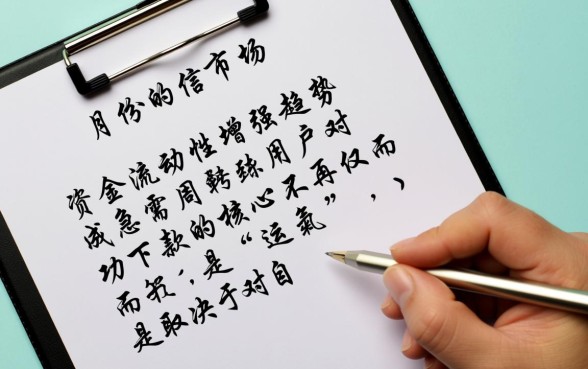 月份的信市场
资金流动性增强趋势
成急需周转臻用户对
功下款的核心不再仅而
而，是“运氣”，、
是取决于对自